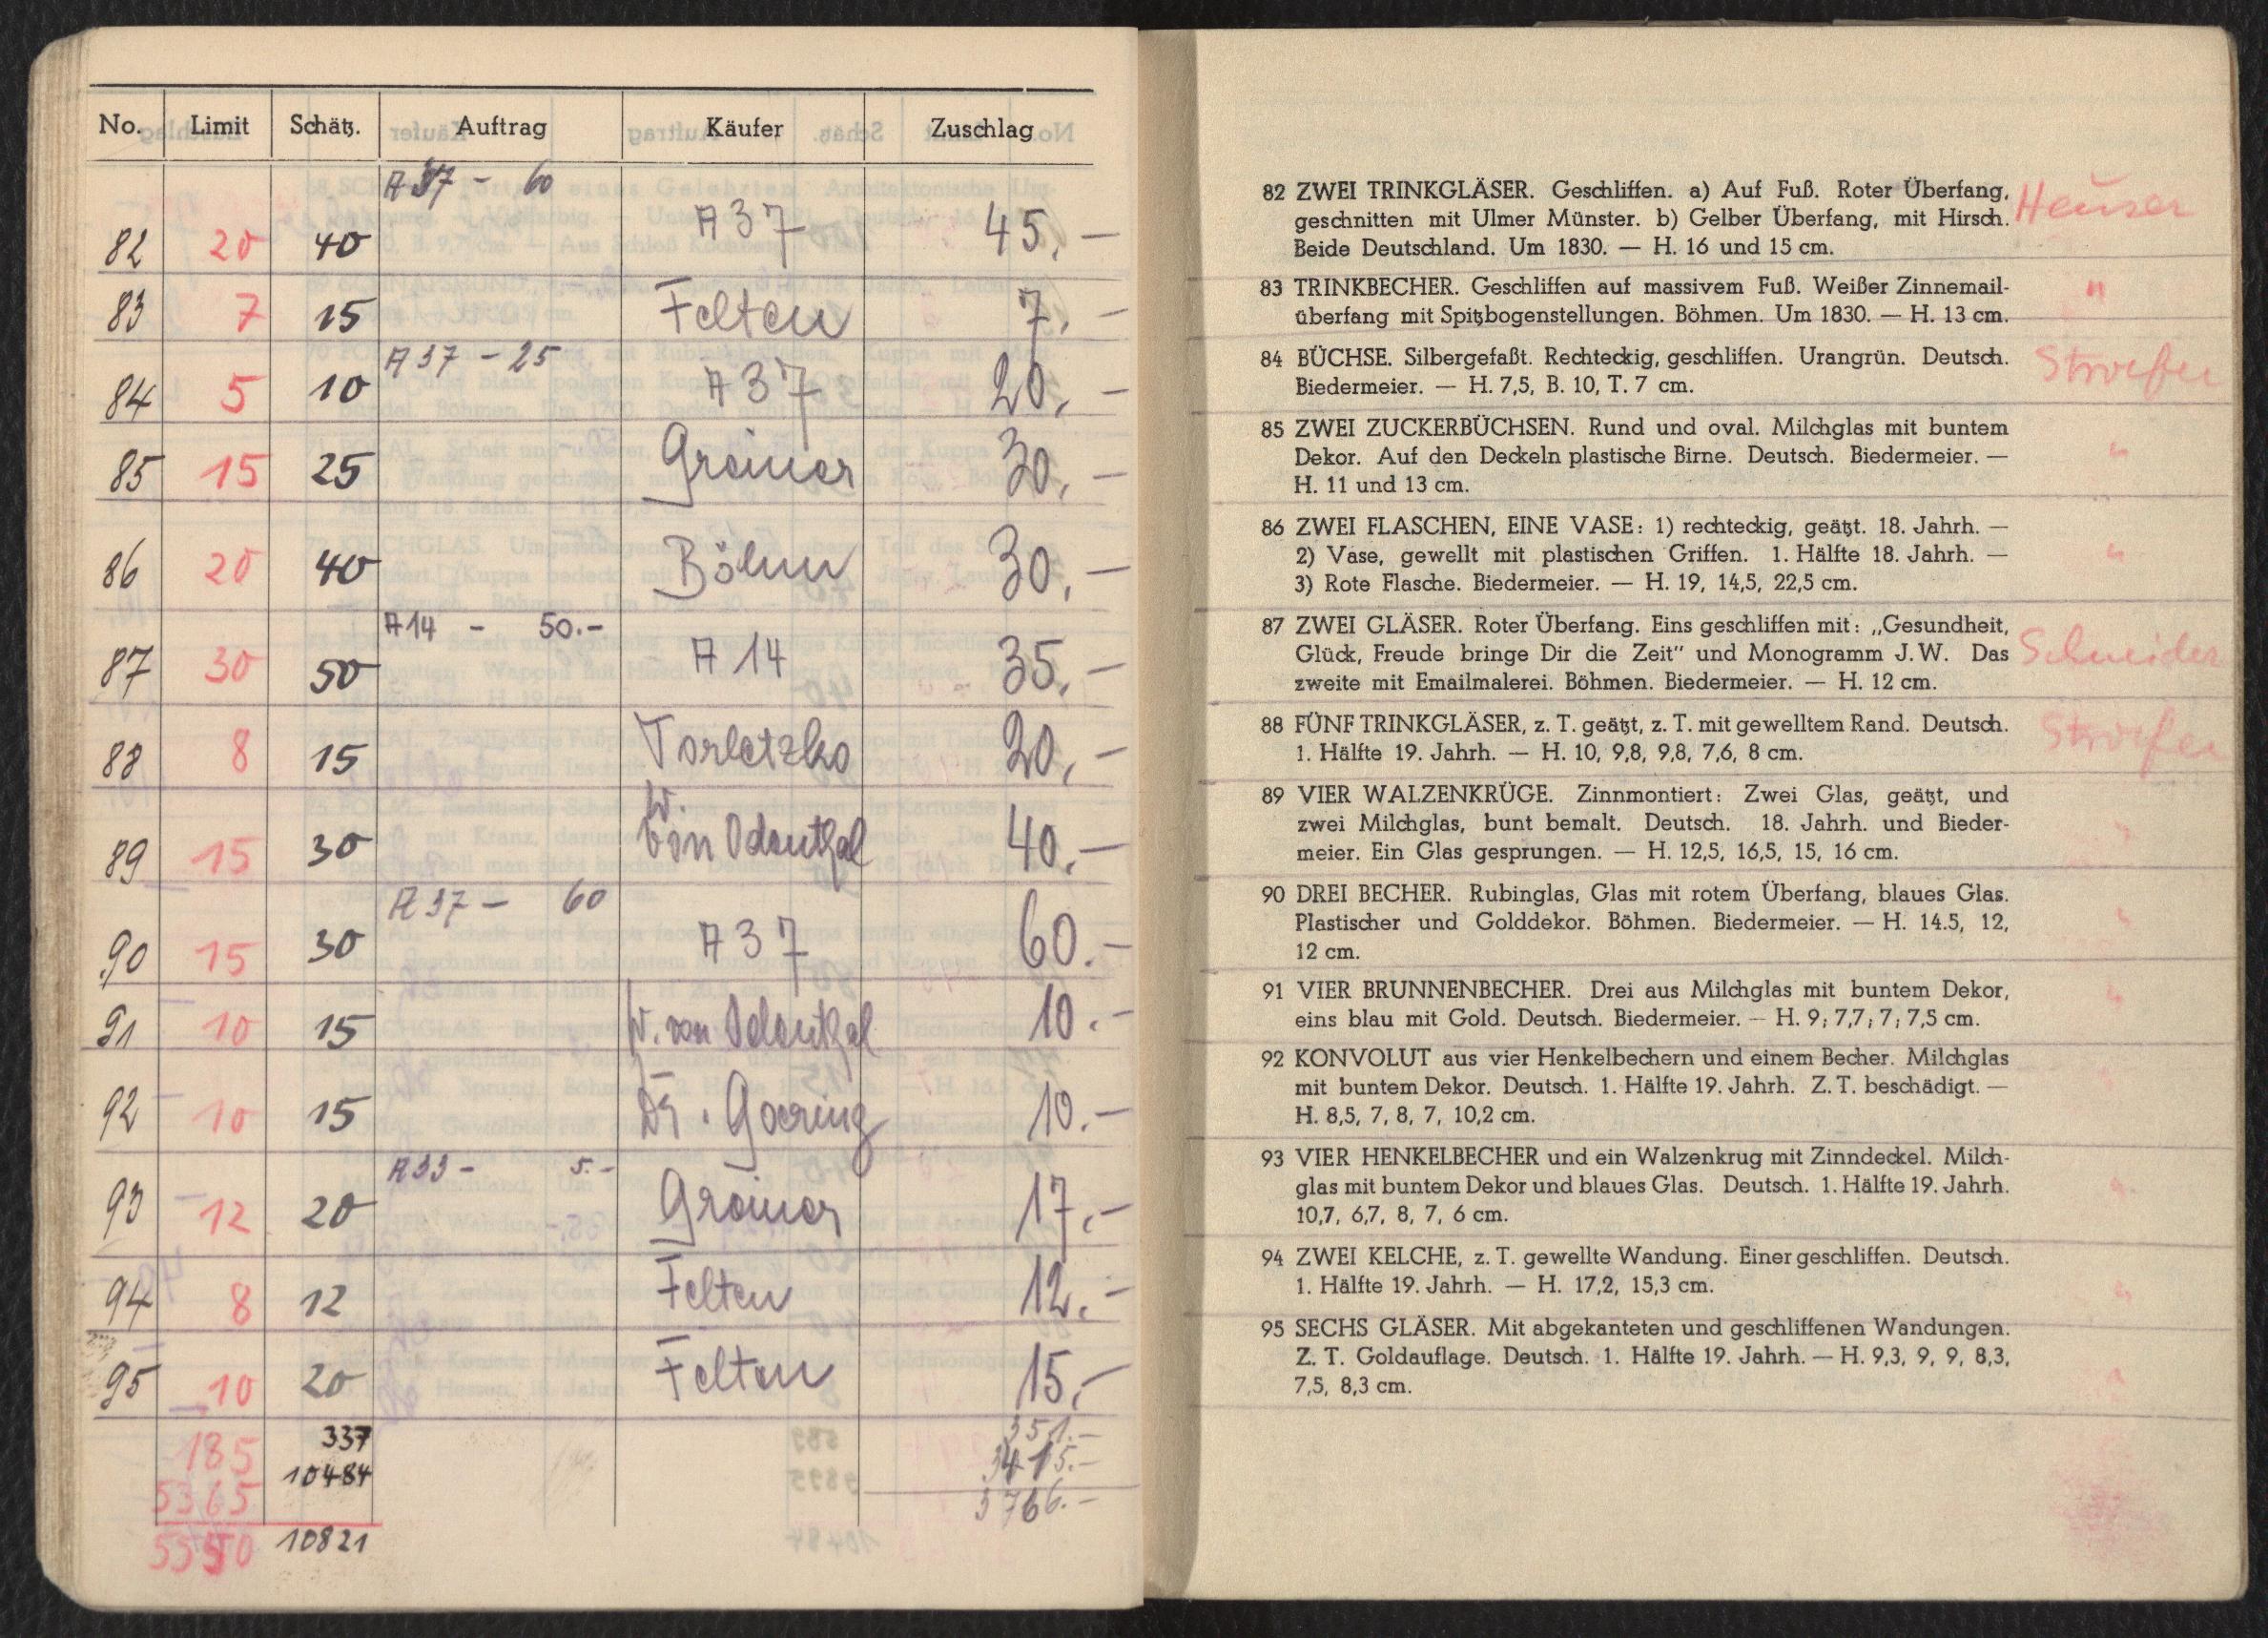 No. Limit Schätz. Auftrag Käufer Zuschlag
A 37 - 60
82 20 40 A 37 45.-
83 7 15 Felten 7.-
A 37 - 25
84 5 10 A 37 20.-
85 15 25 Greiner 30.-
86 20 40 Böhm 30.-
A14 - 50.-
87 30 50 A 14 35.-
88 8 15 Torletzko 20.-
W.
89 15 30 von Odenthal 40.-
A 37 - 60
90 15 30 A 37 60.-
91 10 15 W. von Odenthal 10.-
92 10 15 Dr. Goering 10.-
A33 - 5.-
93 12 20 Greiner 17.-
94 8 12 Felten 12.-
95 10 20 Felten 15.-
185 337 351.-
5365 10484 3415.-
5550 10821 3766.-
82 ZWEI TRINKGLÄSER. Geschliffen. a) Auf Fuß. Roter Überfang,
geschnitten mit Ulmer Münster. b) Gelber Überfang, mit Hirsch. Heuser
Beide Deutschland. Um 1830. — H. 16 und 15 cm.
83 TRINKBECHER. Geschliffen auf massivem Fuß. Weißer Zinnemail- "
überfang mit Spitzbogenstellungen. Böhmen. Um 1830. — H. 13 cm.
84 BÜCHSE. Silbergefaßt. Rechteckig, geschliffen. Urangrün. Deutsch.
Biedermeier. — H. 7,5, B. 10, T. 7 cm.
85 ZWEI ZUCKERBÜCHSEN. Rund und oval. Milchglas mit buntem
Dekor. Auf den Deckeln plastische Birne. Deutsch. Biedermeier. — "
H. 11 und 13 cm.
86 ZWEI FLASCHEN, EINE VASE: 1) rechteckig, geätzt. 18. Jahrh. —
2) Vase, gewellt mit plastischen Griffen. 1. Hälfte 18. Jahrh. — "
3) Rote Flasche. Biedermeier. — H. 19, 14,5, 22,5 cm.
87 ZWEI GLÄSER. Roter Überfang. Eins geschliffen mit: „Gesundheit,
Glück, Freude bringe Dir die Zeit" und Monogramm J. W. Das Schneider
zweite mit Emailmalerei. Böhmen. Biedermeier. — H. 12 cm.
88 FÜNF TRINKGLÄSER, z. T. geätzt, z. T. mit gewelltem Rand. Deutsch.
1. Hälfte 19. Jahrh. — H. 10, 9,8, 9,8, 7,6, 8 cm.
89 VIER WALZENKRÜGE. Zinnmontiert: Zwei Glas, geätzt, und
zwei Milchglas, bunt bemalt. Deutsch. 18. Jahrh. und Bieder- "
meier. Ein Glas gesprungen. — H. 12,5, 16,5, 15, 16 cm.
90 DREI BECHER. Rubinglas, Glas mit rotem Überfang, blaues Glas.
Plastischer und Golddekor. Böhmen. Biedermeier. — H. 14.5, 12, "
12 cm.
91 VIER BRUNNENBECHER. Drei aus Milchglas mit buntem Dekor, "
eins blau mit Gold. Deutsch. Biedermeier. — H. 9; 7,7; 7; 7,5 cm.
92 KONVOLUT aus vier Henkelbechern und einem Becher. Milchglas
mit buntem Dekor. Deutsch. 1. Hälfte 19. Jahrh. Z. T. beschädigt. — "
H. 8,5, 7, 8, 7, 10,2 cm.
93 VIER HENKELBECHER und ein Walzenkrug mit Zinndeckel. Milch-
glas mit buntem Dekor und blaues Glas. Deutsch. 1. Hälfte 19. Jahrh. "
10,7, 6,7, 8, 7, 6 cm.
94 ZWEI KELCHE, z. T. gewellte Wandung. Einer geschliffen. Deutsch.
1. Hälfte 19. Jahrh. — H. 17,2, 15,3 cm. "
95 SECHS GLÄSER. Mit abgekanteten und geschliffenen Wandungen.
Z. T. Goldauflage. Deutsch. 1. Hälfte 19. Jahrh. — H. 9,3, 9, 9, 8,3,
7,5, 8,3 cm. "